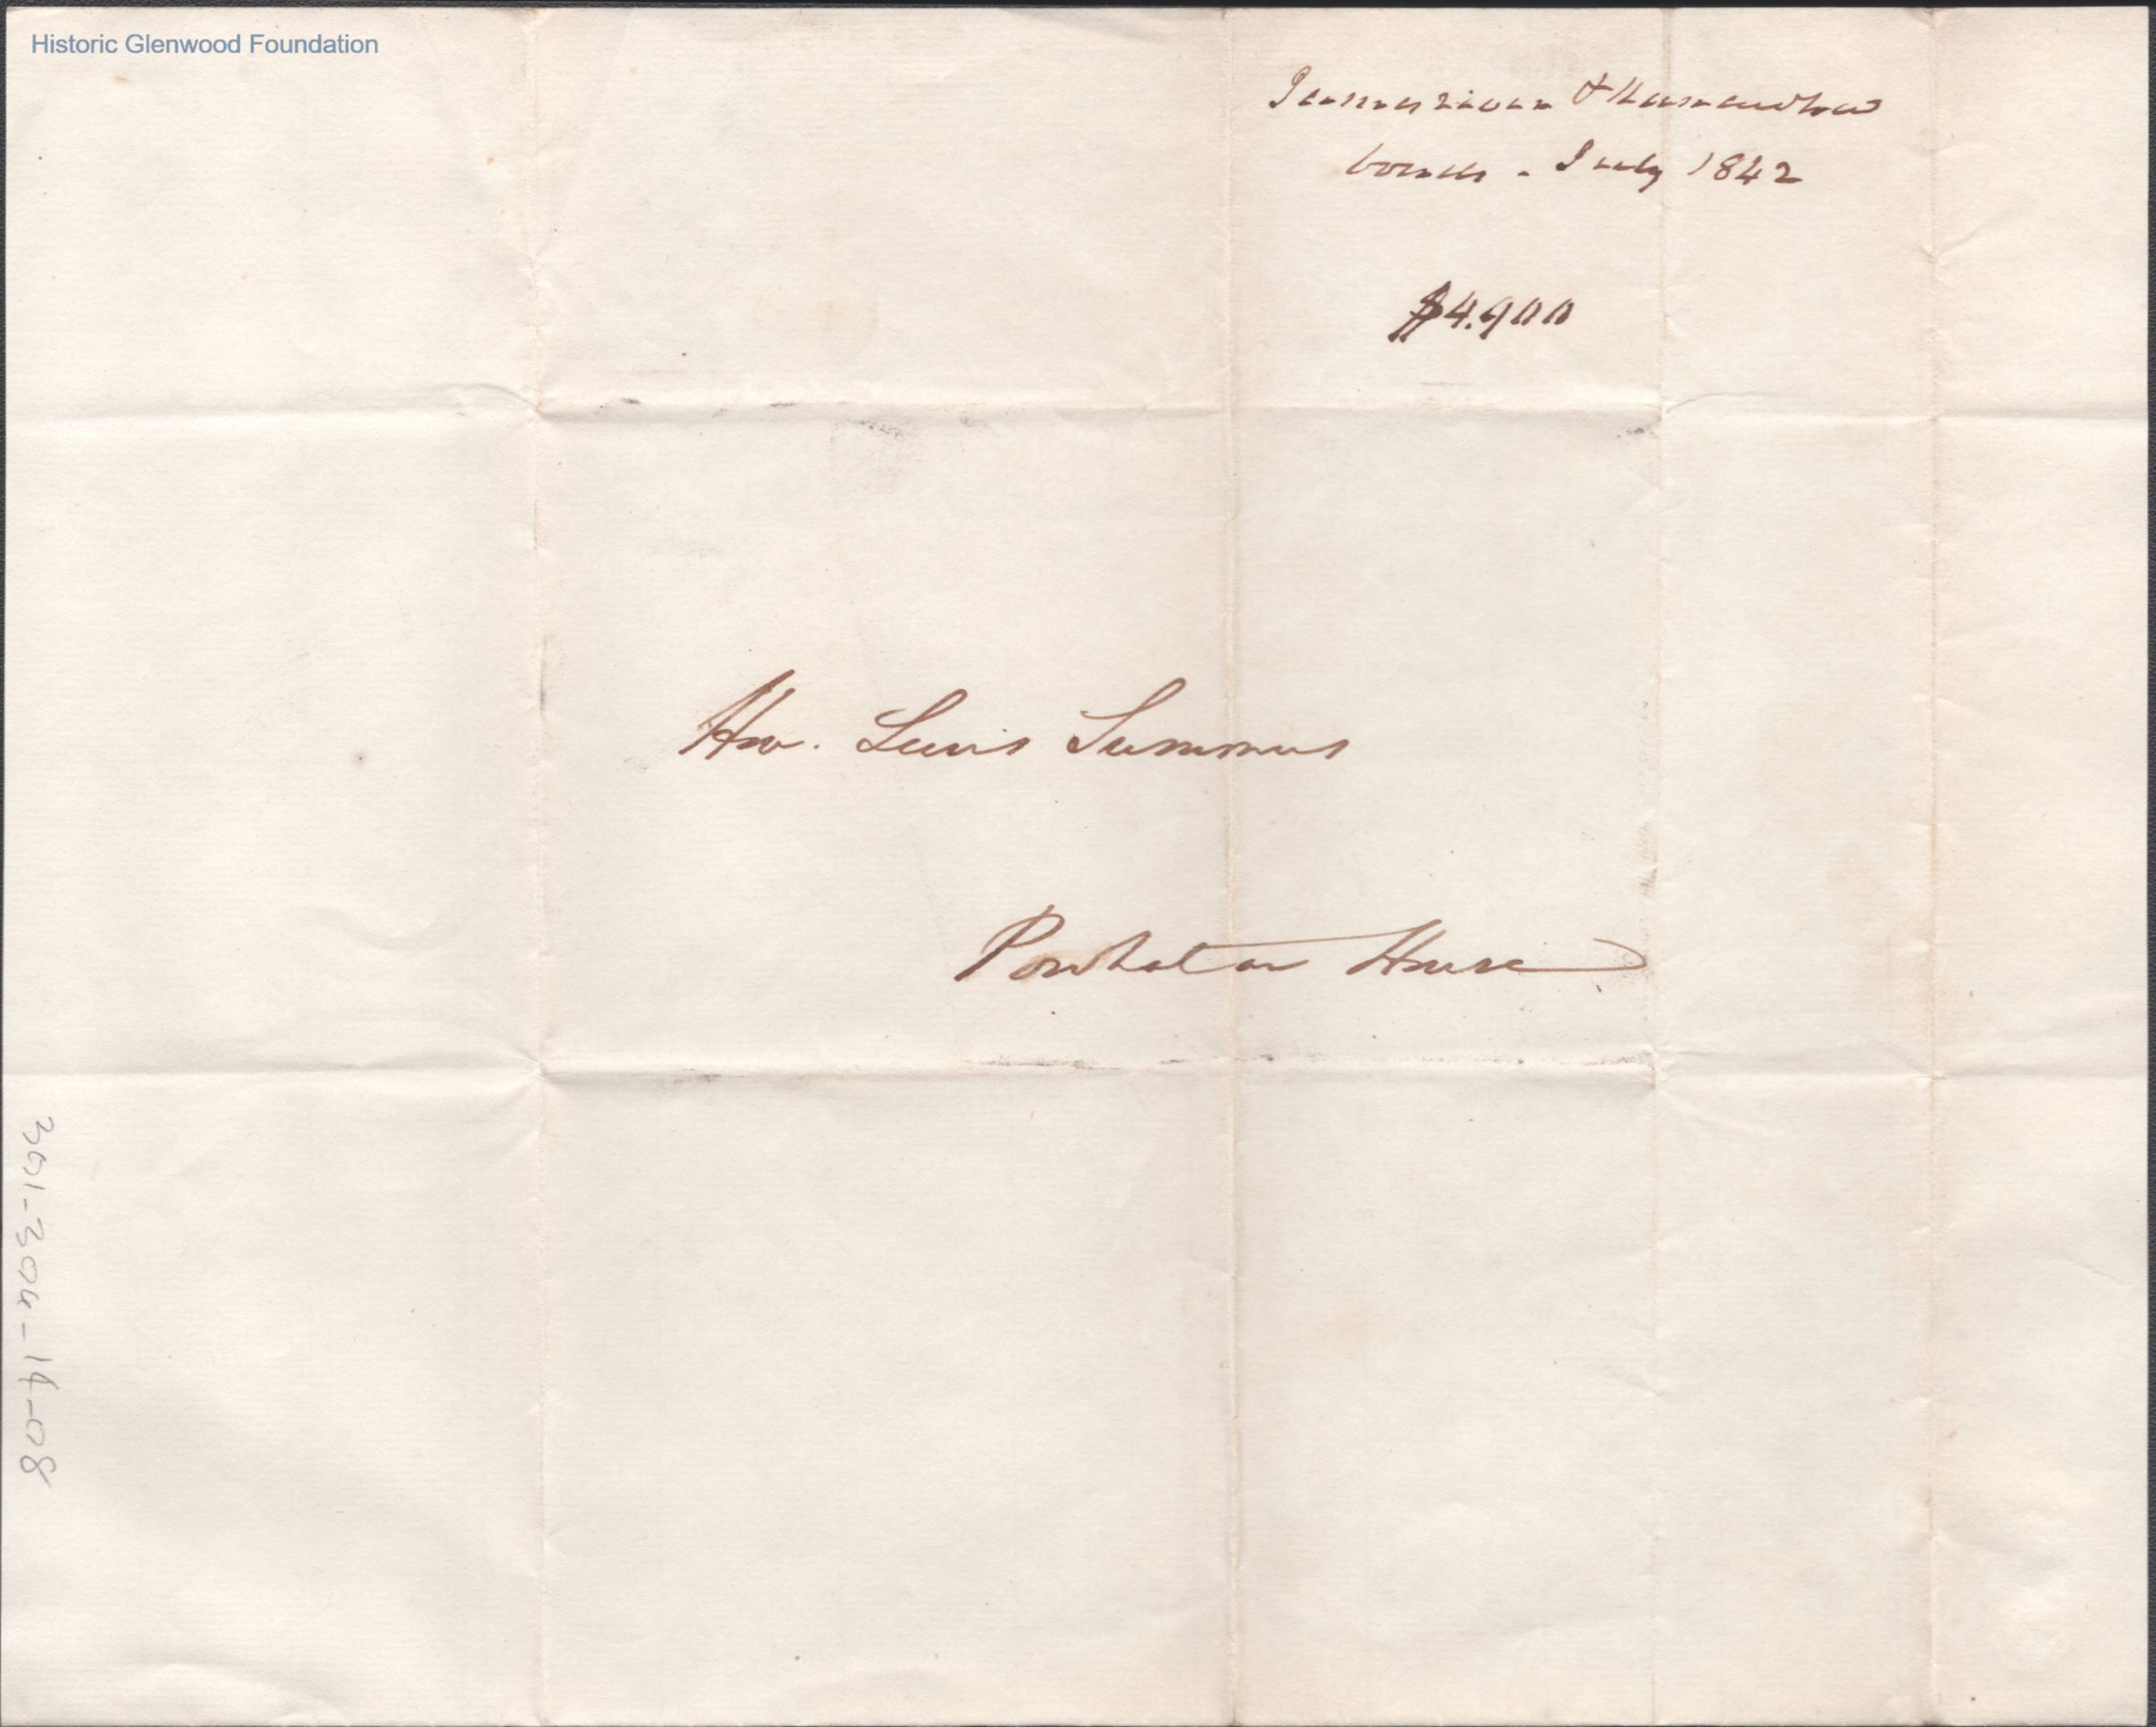 Historic Glenwood Foundation
James river & Kanawha
bonds - July 1842
$4.900
Hon. Lewis Summers
Powhatan House
301-304-14-08